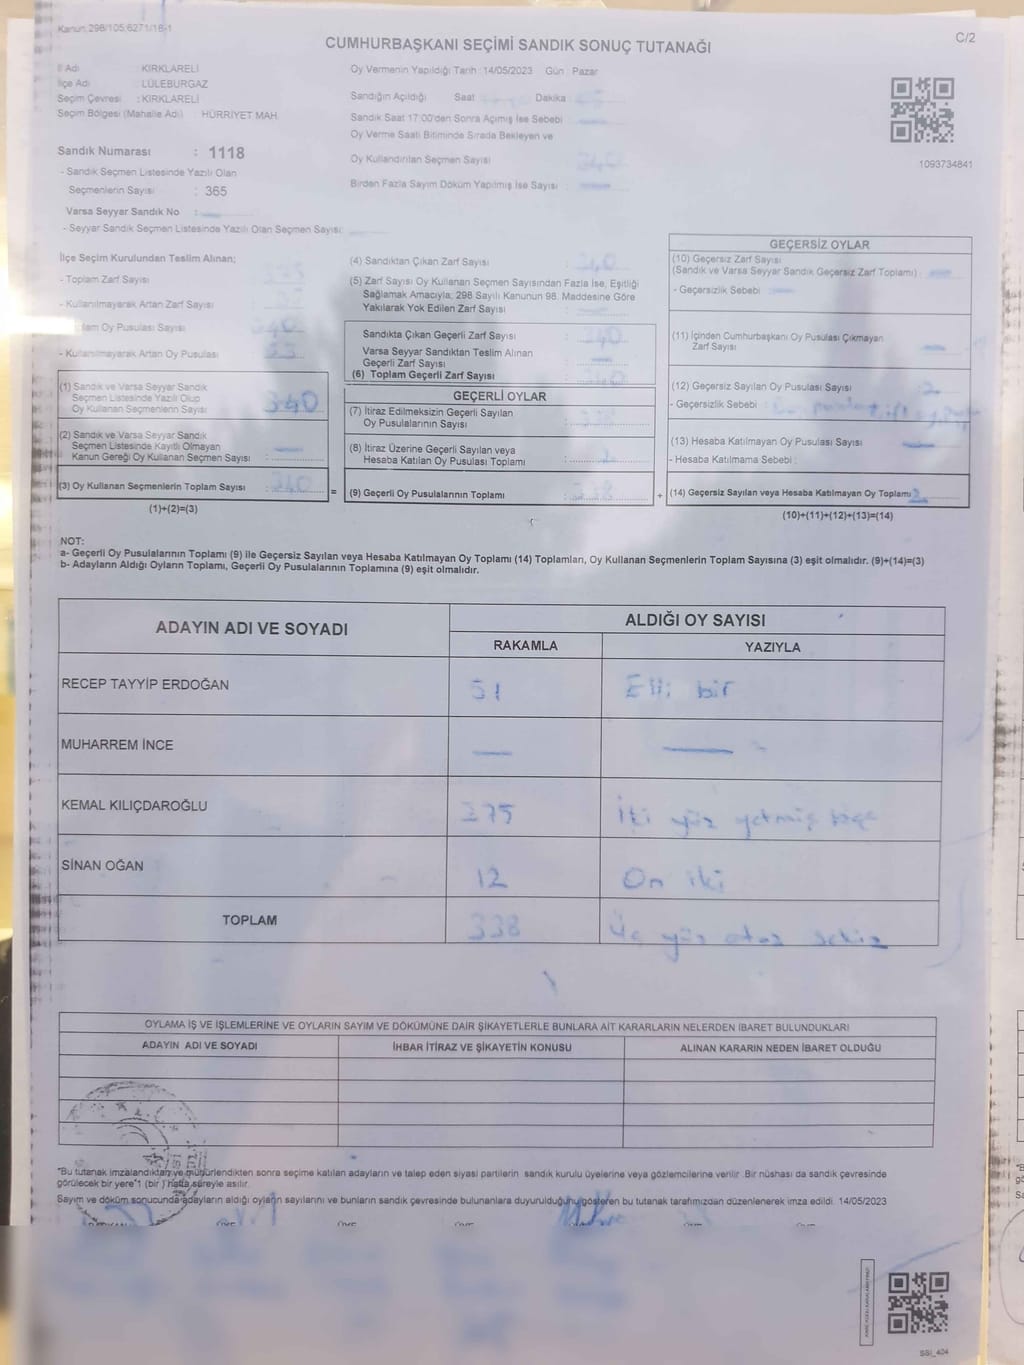 Kanun 298/105,6271/18-1
C/2
CUMHURBAŞKANI SEÇİMİ SANDIK SONUÇ TUTANAĞI
İl Adı : KIRKLARELİ
İlçe Adı : LÜLEBURGAZ
Seçim Çevresi : KIRKLARELİ
Seçim Bölgesi (Mahalle Adı) HÜRRİYET MAH.
Sandık Numarası : 1118
- Sandık Seçmen Listesinde Yazılı Olan
Seçmenlerin Sayısı : 365
Varsa Seyyar Sandık No :
- Seyyar Sandık Seçmen Listesinde Yazılı Olan Seçmen Sayısı:
Oy Vermenin Yapıldığı Tarih : 14/05/2023 Gün : Pazar
Sandığın Açıldığı Saat Dakika :
Sandık Saat 17:00'den Sonra Açımış İse Sebebi :
Oy Verme Saati Bitiminde Sırada Bekleyen ve
Oy Kullandırılan Seçmen Sayısı
Birden Fazla Sayım Döküm Yapılmış İse Sayısı :
1093734841
İlçe Seçim Kurulundan Teslim Alınan;
- Toplam Zarf Sayısı
- Kullanılmayarak Artan Zarf Sayısı
Oy Pusulası Sayısı 340
- Kullanılmayarak Artan Oy Pusulası
(1) Sandık ve Varsa Seyyar Sandık
Seçmen Listesinde Yazılı Olup
Oy Kullanan Seçmenlerin Sayısı 340
(2) Sandık ve Varsa Seyyar Sandık
Seçmen Listesinde Kayıtlı Olmayan
Kanun Gereği Oy Kullanan Seçmen Sayısı :
(3) Oy Kullanan Seçmenlerin Toplam Sayısı : 340
(1)+(2)=(3)
(4) Sandıktan Çıkan Zarf Sayısı : 340
(5) Zarf Sayısı Oy Kullanan Seçmen Sayısından Fazla İse, Eşitliği
Sağlamak Amacıyla, 298 Sayılı Kanunun 98. Maddesine Göre
Yakılarak Yok Edilen Zarf Sayısı :
Sandıkta Çıkan Geçerli Zarf Sayısı : 340
Varsa Seyyar Sandıktan Teslim Alınan
Geçerli Zarf Sayısı :
(6) Toplam Geçerli Zarf Sayısı : 340
GEÇERLİ OYLAR
(7) İtiraz Edilmeksizin Geçerli Sayılan
Oy Pusulalarının Sayısı : 338
(8) İtiraz Üzerine Geçerli Sayılan veya
Hesaba Katılan Oy Pusulası Toplamı :
= (9) Geçerli Oy Pusulalarının Toplamı : 338 +
GEÇERSİZ OYLAR
(10) Geçersiz Zarf Sayısı
(Sandık ve Varsa Seyyar Sandık Geçersiz Zarf Toplamı) :
- Geçersizlik Sebebi :
(11) İçinden Cumhurbaşkanı Oy Pusulası Çıkmayan
Zarf Sayısı
(12) Geçersiz Sayılan Oy Pusulası Sayısı : 2
- Geçersizlik Sebebi :
(13) Hesaba Katılmayan Oy Pusulası Sayısı :
- Hesaba Katılmama Sebebi :
(14) Geçersiz Sayılan veya Hesaba Katılmayan Oy Toplamı : 2
(10)+(11)+(12)+(13)=(14)
NOT:
a- Geçerli Oy Pusulalarının Toplamı (9) ile Geçersiz Sayılan veya Hesaba Katılmayan Oy Toplamı (14) Toplamları, Oy Kullanan Seçmenlerin Toplam Sayısına (3) eşit olmalıdır. (9)+(14)=(3)
b- Adayların Aldığı Oyların Toplamı, Geçerli Oy Pusulalarının Toplamına (9) eşit olmalıdır.
ADAYIN ADI VE SOYADI
ALDIĞI OY SAYISI
RAKAMLA YAZIYLA
RECEP TAYYİP ERDOĞAN 51 Elli bir
MUHARREM İNCE — —
KEMAL KILIÇDAROĞLU 275 İki yüz yetmiş beş
SİNAN OĞAN 12 On iki
TOPLAM 338 Üç yüz otuz sekiz
OYLAMA İŞ VE İŞLEMLERİNE VE OYLARIN SAYIM VE DÖKÜMÜNE DAİR ŞİKAYETLERLE BUNLARA AİT KARARLARIN NELERDEN İBARET BULUNDUKLARI
ADAYIN ADI VE SOYADI İHBAR İTİRAZ VE ŞİKAYETİN KONUSU ALINAN KARARIN NEDEN İBARET OLDUĞU
"Bu tutanak imzalandıktan ve mühürlendikten sonra seçime katılan adayların ve talep eden siyasi partilerin sandık kurulu üyelerine veya gözlemcilerine verilir. Bir nüshası da sandık çevresinde
görülecek bir yere"1 (bir ) hafta süreyle asılır.
Sayım ve döküm sonucunda adayların aldığı oyların sayılarını ve bunların sandık çevresinde bulunanlara duyurulduğunu gösteren bu tutanak tarafımızdan düzenlenerek imza edildi. 14/05/2023
SSİ_404